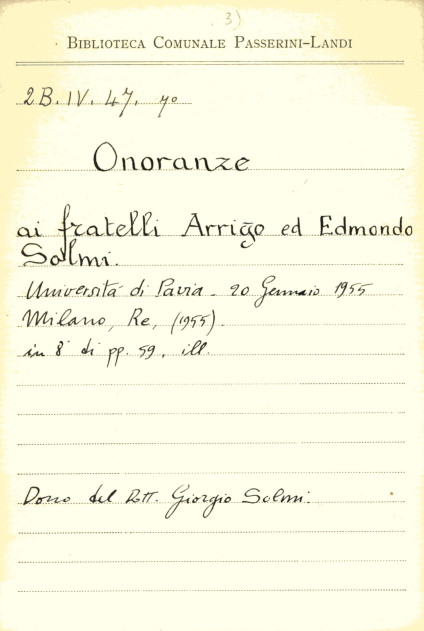 3)
BIBLIOTECA COMUNALE PASSERINI-LANDI
2B.IV.47, 7º
Onoranze
ai fratelli Arrigo ed Edmondo
Solmi.
Università di Pavia - 20 Gennaio 1955
Milano, Re, (1955).
in 8º di pp. 59, ill.
Dono del Dott. Giorgio Solmi.